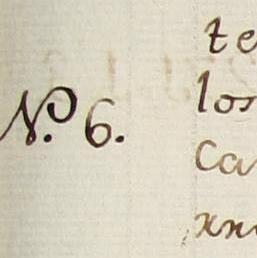 te
los
N.º 6.
Ca
xn